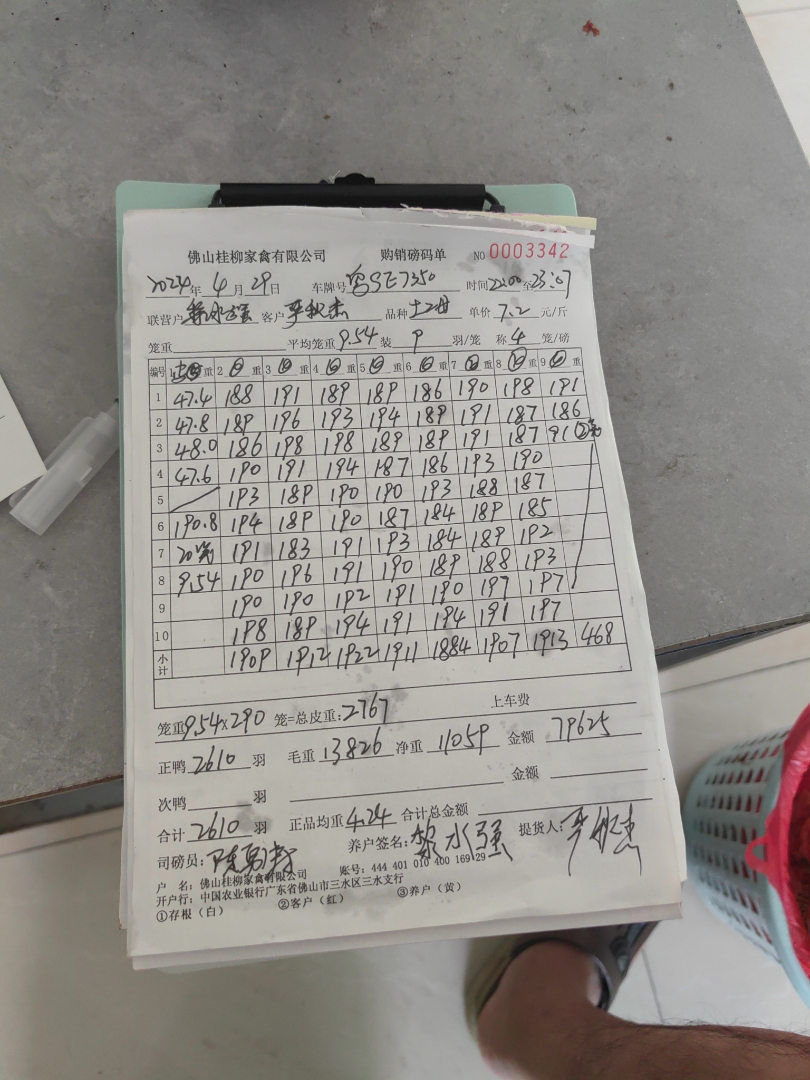 佛山桂柳家禽有限公司 购销磅码单 NO 0003342
2024年 4月 29日 车牌号 粤SE7350 时间 22:00至23:07
联营户 客户 品种 土二母 单价 7.2 元/斤
笼重 平均笼重 9.54 装 9 羽/笼 称 4 笼/磅
编号 1 重 2 重 3 重 4 重 5 重 6 重 7 重 8 重 9 重
1 47.4 188 191 189 189 186 190 198 191
2 47.8 189 196 193 194 189 191 187 186
3 48.0 186 198 198 189 189 191 187 91 ②笼
4 47.6 190 191 194 187 186 193 190
5 193 189 190 190 193 188 187
6 190.8 194 189 190 187 184 189 185
7 20笼 191 183 191 193 184 189 192
8 9.54 190 196 191 190 189 188 193
9 190 190 192 191 190 197 197
10 198 189 194 191 194 191 197
小计 1909 1912 1922 1911 1884 1907 1913 468
笼重 9.54×290 笼=总皮重: 2767 上车费
正鸭 2610 羽 毛重 13826 净重 11059 金额 79625
次鸭 羽 金额
合计 2610 羽 正品均重 4.24 合计总金额
司磅员: 养户签名: 黎水强 提货人:
户 名: 佛山桂柳家禽有限公司 账号: 444 401 010 400 169 29
开户行: 中国农业银行广东省佛山市三水区三水支行
①存根（白） ②客户（红） ③养户（黄）